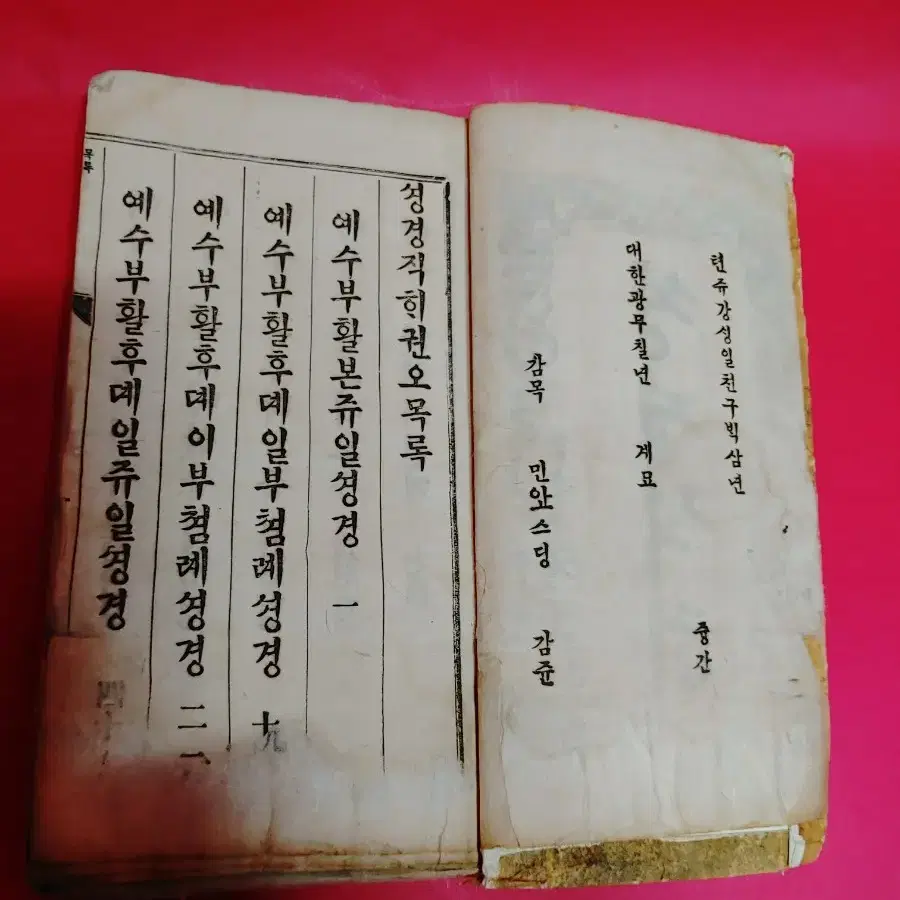 텬쥬강성일쳔구빅삼년
대한광무칠년 계묘
즁간
감목 민안스딩 감쥰
셩경직ᄒᆡ권오목록
예수부활본쥬일셩경 一
예수부활후뎨일부쳠례셩경 十九
예수부활후뎨이부쳠례셩경 二一
예수부활후뎨일쥬일셩경
목록